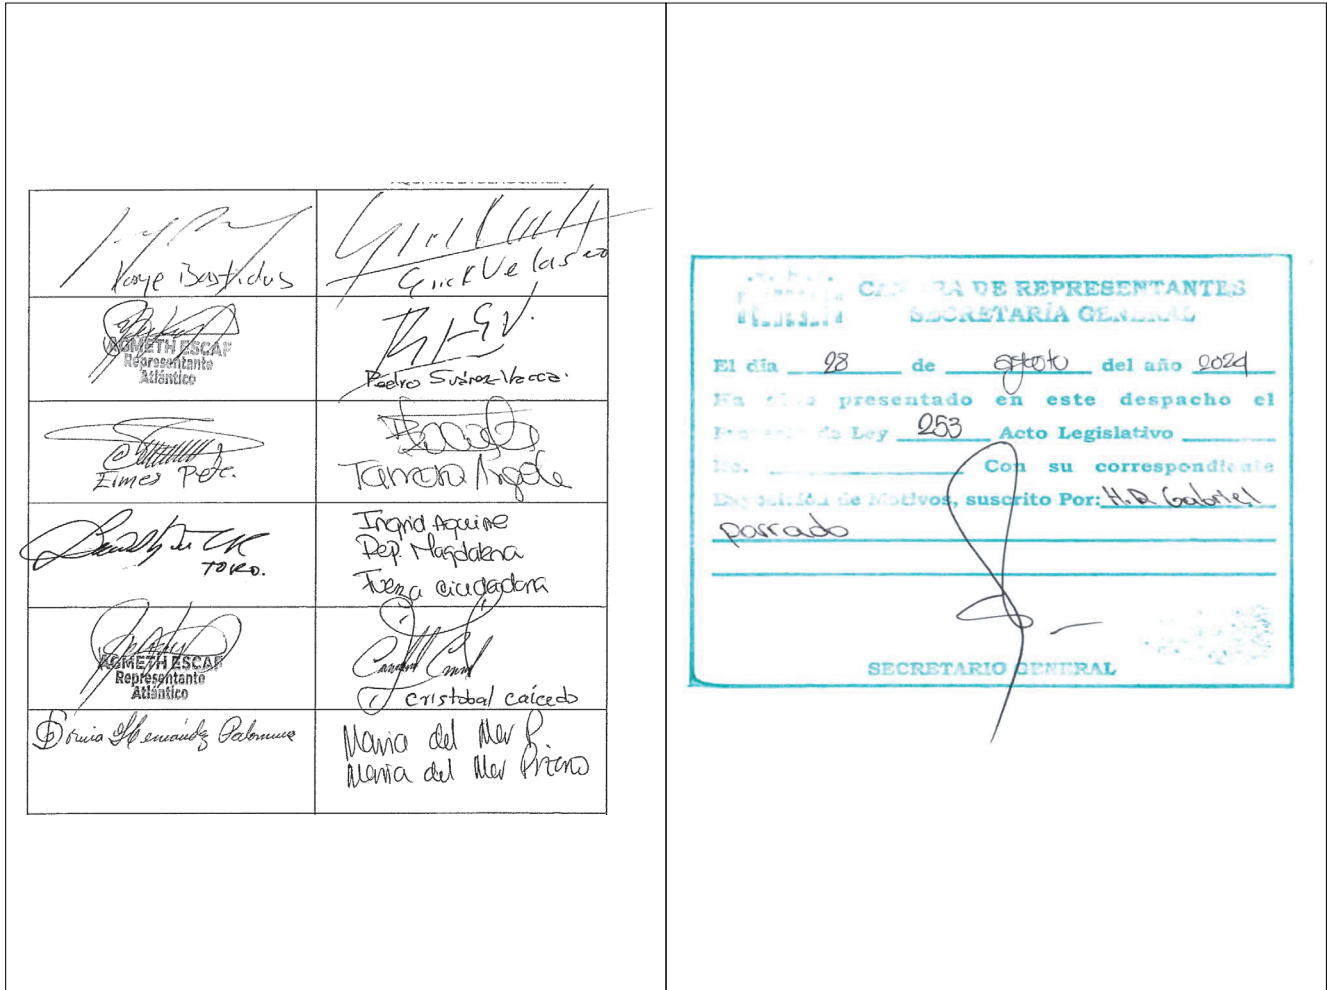 Jorge Bastidas
Erick Velasco
AGMETH ESCAF
Representante
Atlántico
Pedro Suárez Vacca.
Eimer Pete.
Tamara Argote
TORO.
Ingrid Aguirre
Rep. Magdalena
Fuerza Ciudadana
AGMETH ESCAF
Representante
Atlántico
Cristobal Caicedo
Sonia Hernández Palomino
Maria del Mar P
Maria del Mar Pizarro
CAMARA DE REPRESENTANTES
SECRETARÍA GENERAL
El día 28 de agosto del año 2024
Ha sido presentado en este despacho el
Proyecto de Ley 253 Acto Legislativo
No. Con su correspondiente
Exposición de Motivos, suscrito Por: H.R Gabriel
parrado
SECRETARIO GENERAL